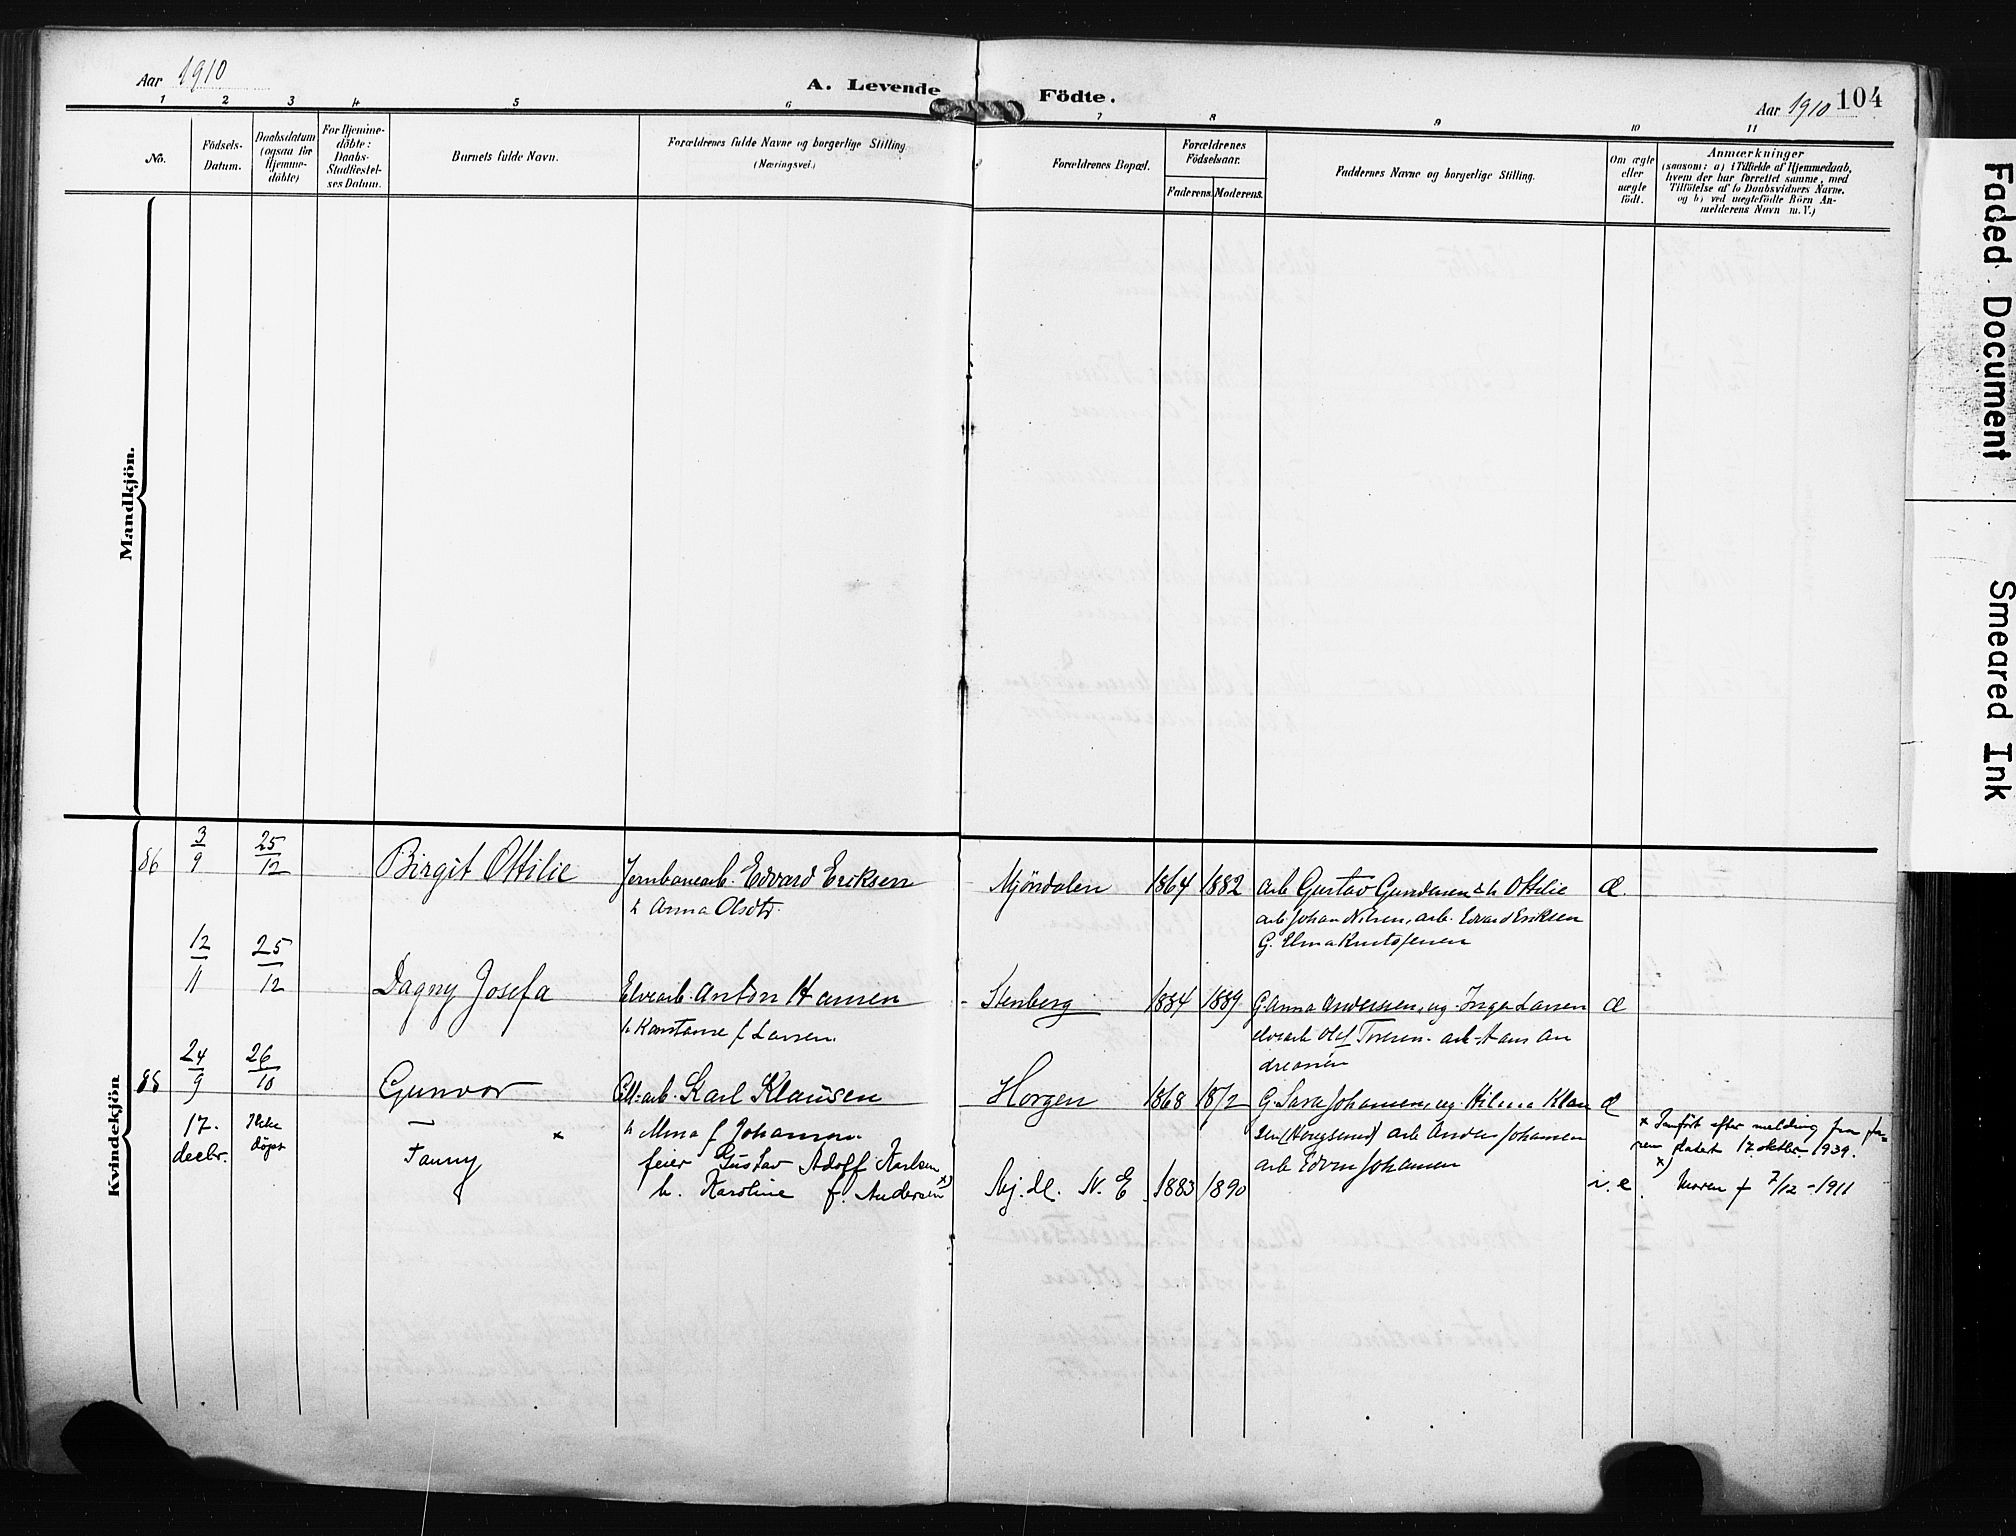 Aar 1910
A. Levende Födte.
Aar 1910 104
1 2 3 4 5 6 7 8 9 10 11
No.
Födsels-
Datum.
Daabsdatum
(ogsaa for
Hjemme-
döbte)
For Hjemme-
döbte:
Daabs-
Stadfæstel-
ses Datum.
Barnets fulde Navn.
Forældrenes fulde Navne og borgerlige Stilling
(Næringsvei.)
Forældrenes Bopæl.
Forældrenes
Födselsaar.
Faderens. Moderens.
Faddernes Navne og borgerlige Stilling.
Om ægte
eller
uægte
født.
Anmærkninger
(saasom: a) i Tilfælde af Hjemmedaab,
hvem der har forrettet samme, med
Tilföielse af to Daabsvidners Navne,
og b) ved uegtefödte Börn An-
melderens Navn m. V.)
Mandkjön.
Kvindekjön
86 3/9 25/12 Birgit Ottilie Jernbanearb. Edvard Eriksen Mjöndalen 1864 1882 arb Gustav Gundersen & h Ottilie æ.
h Anna Olsdtr. arb Johan Nilsen, arb. Edvard Eriksen
G. Elma Kristofersen
12/11 25/12 Dagny Josefa Elvearb. Anton Hansen Stenberg 1884 1889 G. Anna Andersen, ug. Inga Larsen æ
h Konstanse f Larsen. elvearb Olaf Toresen. arb Hans An
dreasen
88 24/9 26/10 Gunvor Cell.arb. Karl Klausen Horgen 1868 1872 G. Sara Johansen, ug. Hilma Klau æ
h Alma f Johansen. sen arb Anders Johansen
arb Edvin Johansen
17. decbr. Ikke døpt Fanny x feier Gustav Adolf Karlsen
h. Karoline f. Andersen x) Mj. dl. N. E 1883 1890 i. e.
x Innført efter melding fra fa-
ren datert 17. oktbr. 1939.
x) Moren † 7/12 - 1911
Faded Document
Smeared Ink